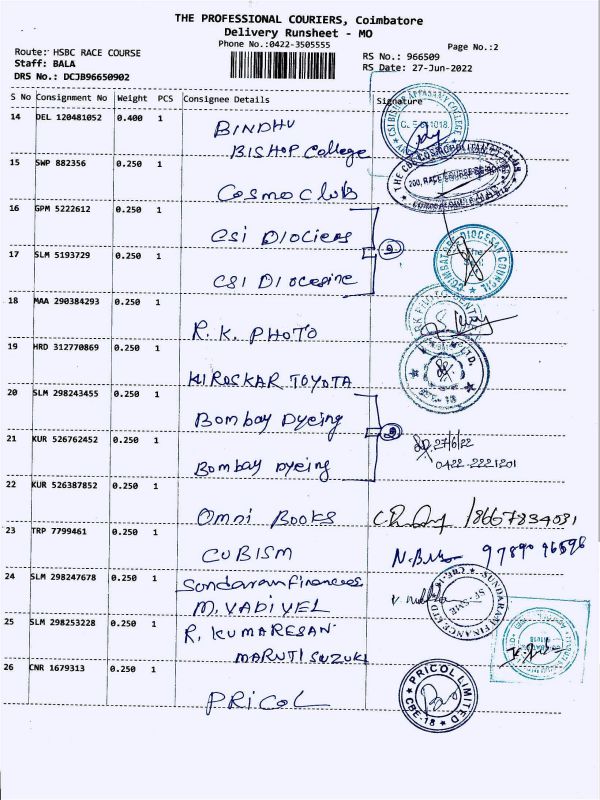 THE PROFESSIONAL COURIERS, Coimbatore
Delivery Runsheet - MO
Phone No.:0422-3505555
Page No.:2
Route: HSBC RACE COURSE
RS No.: 966509
Staff: BALA
RS Date: 27-Jun-2022
DRS No.: DCJB96650902
S No Consignment No Weight PCS Consignee Details Signature
14 DEL 120481052 0.400 1 BINDHU
BISHOP College
15 SWP 882356 0.250 1 Cosmo Club
200, RACE COURSE
16 GPM 5222612 0.250 1 CSI DIOCIERS
17 SLM 5193729 0.250 1 CSI DIOCESINE
②
COIMBATORE DIOCESAN COUNCIL
18 MAA 290384293 0.250 1 R.K. PHOTO
19 HRD 312770869 0.250 1 KIROSKAR TOYOTA
20 SLM 298243455 0.250 1 Bombay Dyeing
21 KUR 526762452 0.250 1 Bombay Dyeing
②
27/6/22
0422-2221201
22 KUR 526387852 0.250 1 Omni BOOKS
23 TRP 7799461 0.250 1 CUBISM
24 SLM 298247678 0.250 1 Sundaram Finances
M. VADIVEL
SUNDARAM FINANCE LTD
25 SLM 298253228 0.250 1 R. KUMARESAN
MARUTI SUZUKI
26 CNR 1679313 0.250 1 PRICOL
PRICOL LIMITED
CBE-18